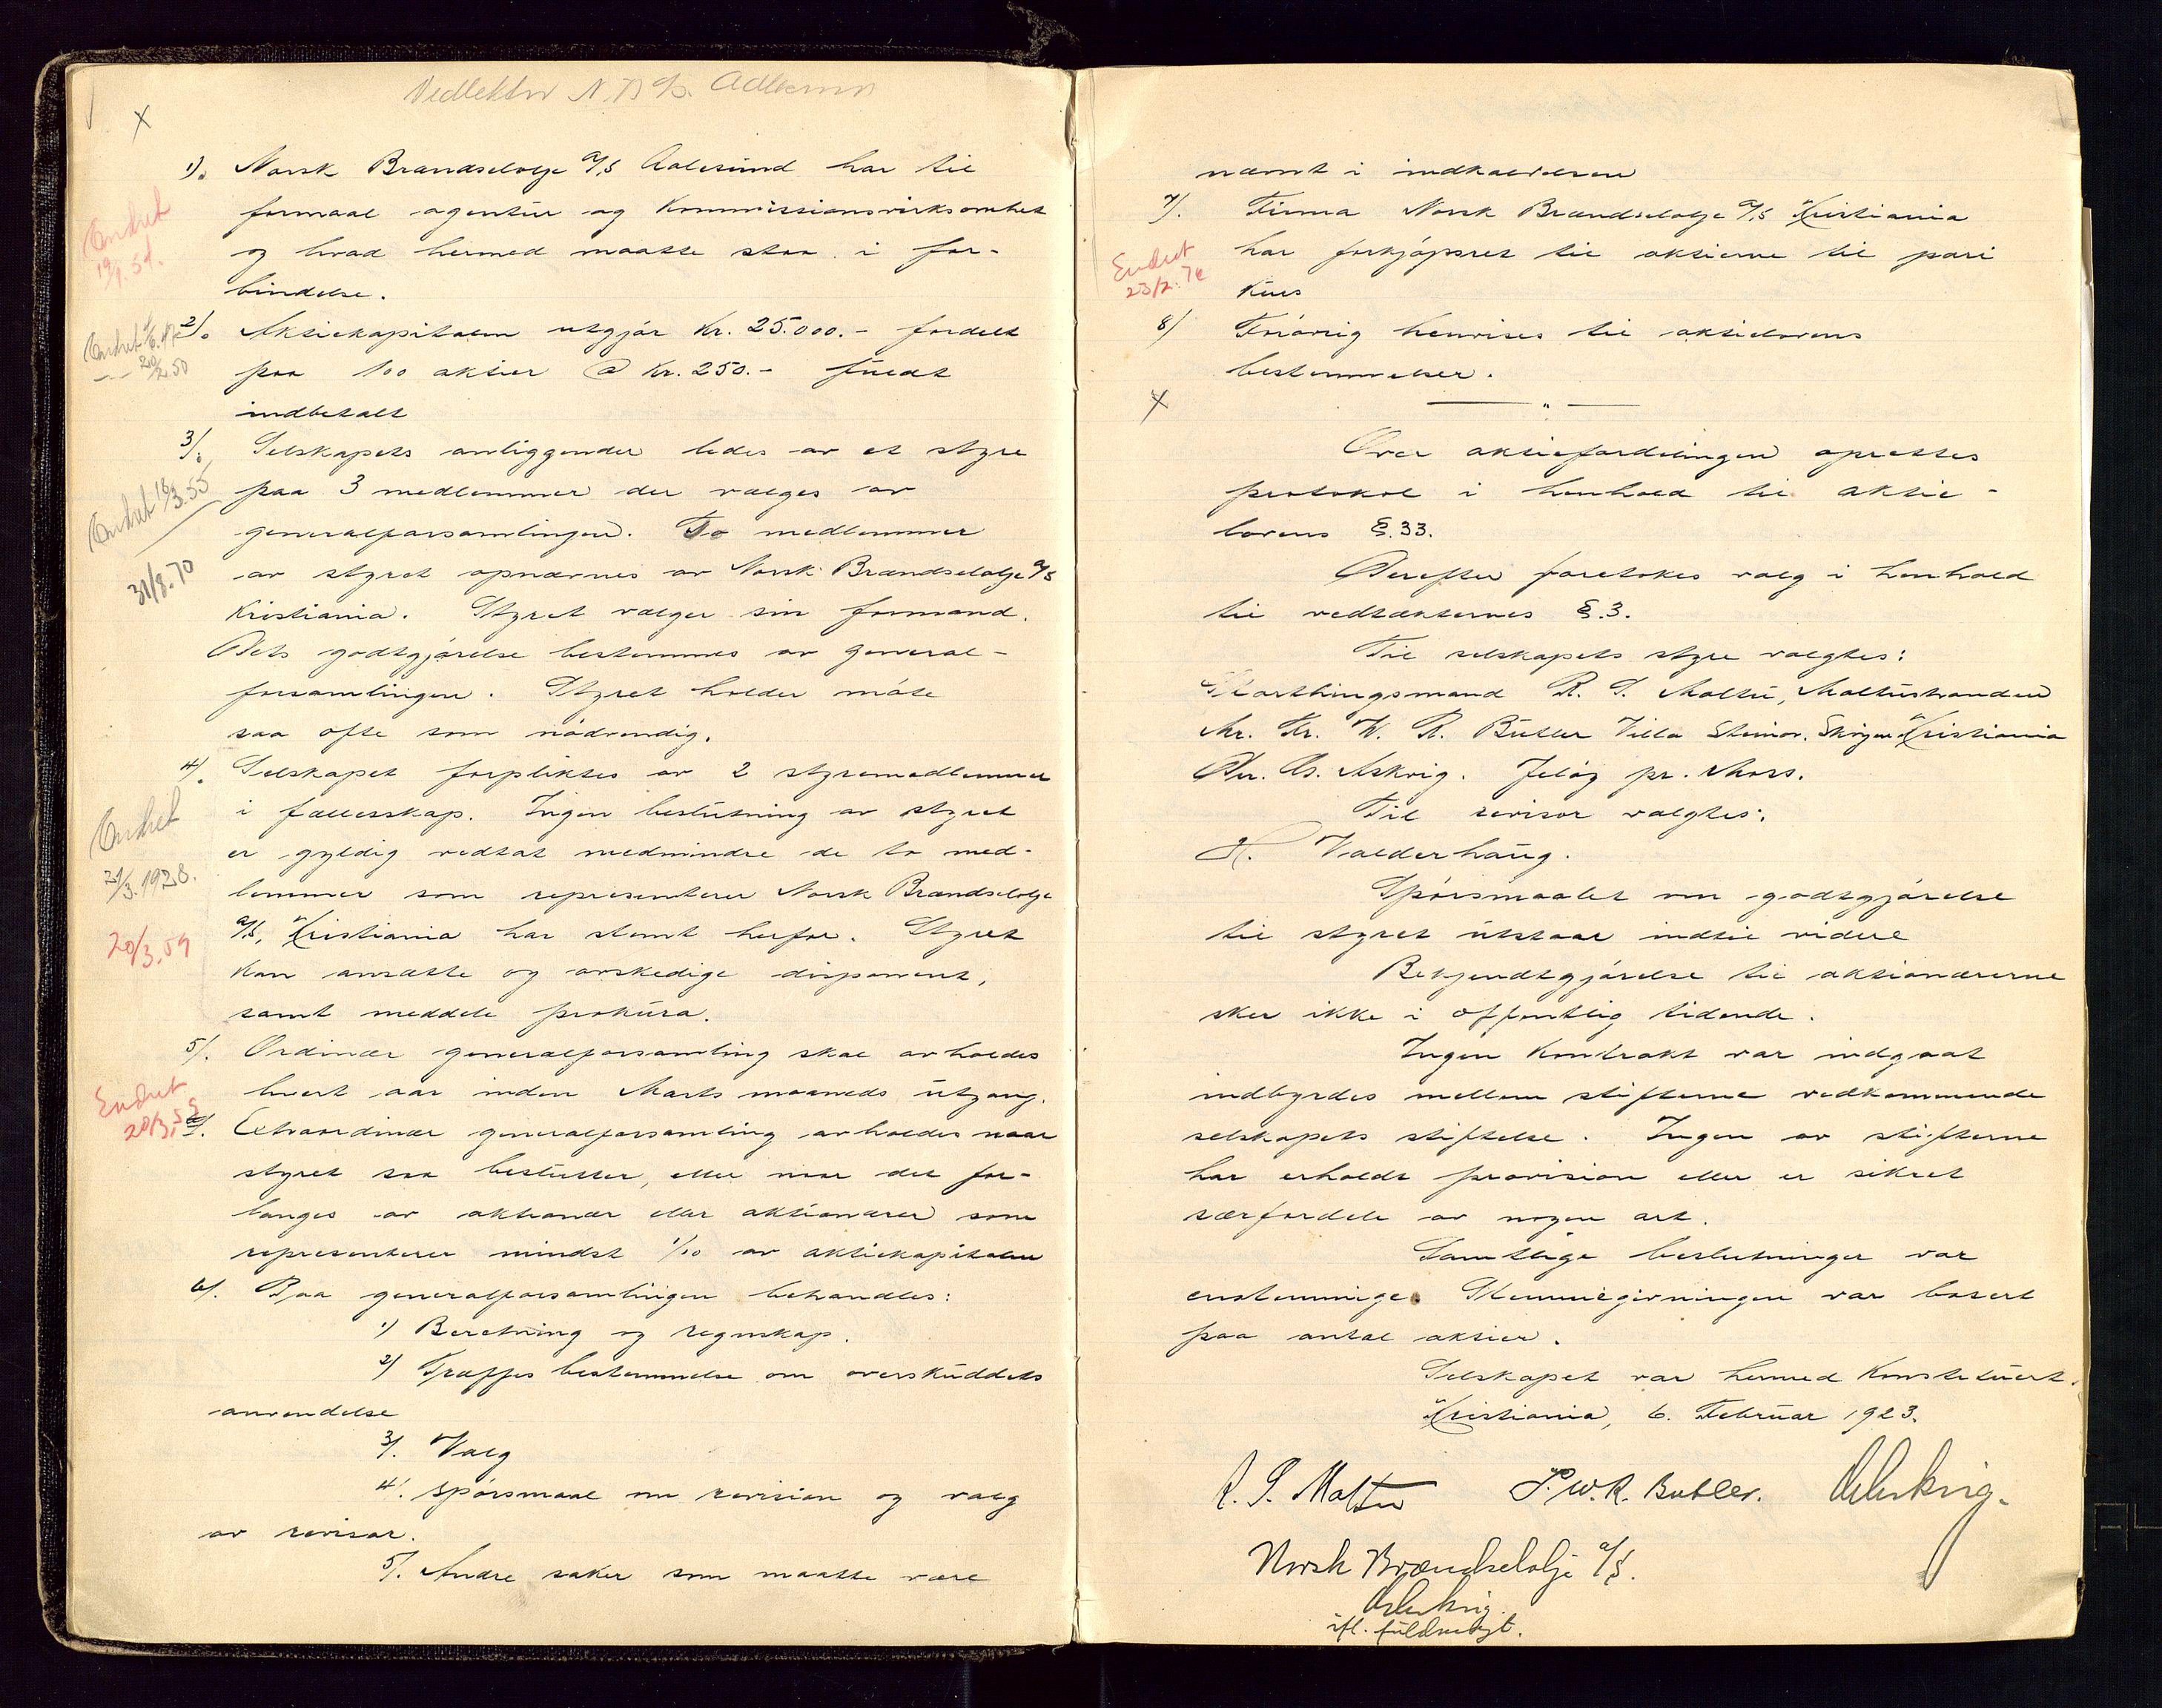 Vedtekter N.B. A/S
x
1). Norsk Brændselolje A/S Aalesund har til
formaal agentur og kommissionsvirksomhet
og hvad hermed maatte staa i for-
bindelse.
Endret
19/1.54.
2). Aktiekapitalen utgjör Kr. 25.000.- fordelt
paa 100 aktier @ Kr. 250.- fuldt
indbetalt
Endret
20/2.50
3). Selskapets anliggender ledes av et styre
paa 3 medlemmer der vælges av
generalforsamlingen. To medlemmer
av styret opnævnes av Norsk Brændselolje A/S
Kristiania. Styret vælger sin formand.
Dets godtgjörelse bestemmes av general-
forsamlingen. Styret holder möte
saa ofte som nödvendig.
Endret 18/3.55
31/8.70
4). Selskapet forpliktes av 2 styremedlemmer
i fællesskap. Ingen beslutning av styret
er gyldig vedtat medmindre de to med-
lemmer som representerer Norsk Brændselolje
A/S, Kristiania har stemt herfor. Styret
kan ansætte og avskedige disponent,
samt meddele prokura.
Endret
21/3.1928.
20/3.59
5). Ordinær generalforsamling skal avholdes
hvert aar inden Marts maaneds utgang.
Extraordinær generalforsamling avholdes naar
styret saa beslutter, eller naar det for-
langes av aktionær eller aktionærer som
representerer mindst 1/10 av aktiekapitalen
Endret
20/3.59
6). Paa generalforsamlingen behandles:
1) Beretning og regnskap.
2) Træffes bestemmelse om overskuddets
anvendelse
3). Valg
4). Spörsmaal om revision og valg
av revisor.
5). Andre saker som maatte være
nævnt i indkaldelsen
7). Firma Norsk Brændselolje A/S Kristiania
har forkjöpsret til aktierne til pari
kurs
Endret
23/2.76
8) Forövrig henvises til aktielovens
bestemmelser.
x
Over aktiefordelingen oprettes
protokol i henhold til aktie-
lovens §.33.
Derefter foretokes valg i henhold
til vedtækternes §.3.
Til selskapets styre valgtes:
Storthingsmand R. S. Maltu, Maltustranden
Hr. Fr. W. R. Butler Villa Steinar. Skøyen Kristiania
Dir. Askvig. Jelöy pr. Moss.
Til revisor valgtes:
K. Valderhaug.
Spörsmaalet om godtgjörelse
til styret utstaar indtil videre
Bekjendtgjörelse til aktionærerne
sker ikke i offentlig tidende.
Ingen kontrakt var indgaat
indbyrdes mellem stifterne vedkommende
selskapets stiftelse. Ingen av stifterne
har erholdt provision eller er sikret
særfordele av nogen art.
Samtlige beslutninger var
enstemmige. Stemmegivningen var basert
paa antal aktier.
Selskapet var hermed konstetuert.
Kristiania, 6. Februar 1923.
R. S. Maltu F. W. R. Butler. Askvig.
Norsk Brændselolje A/S.
Askvig.
ifl. fuldmagt.